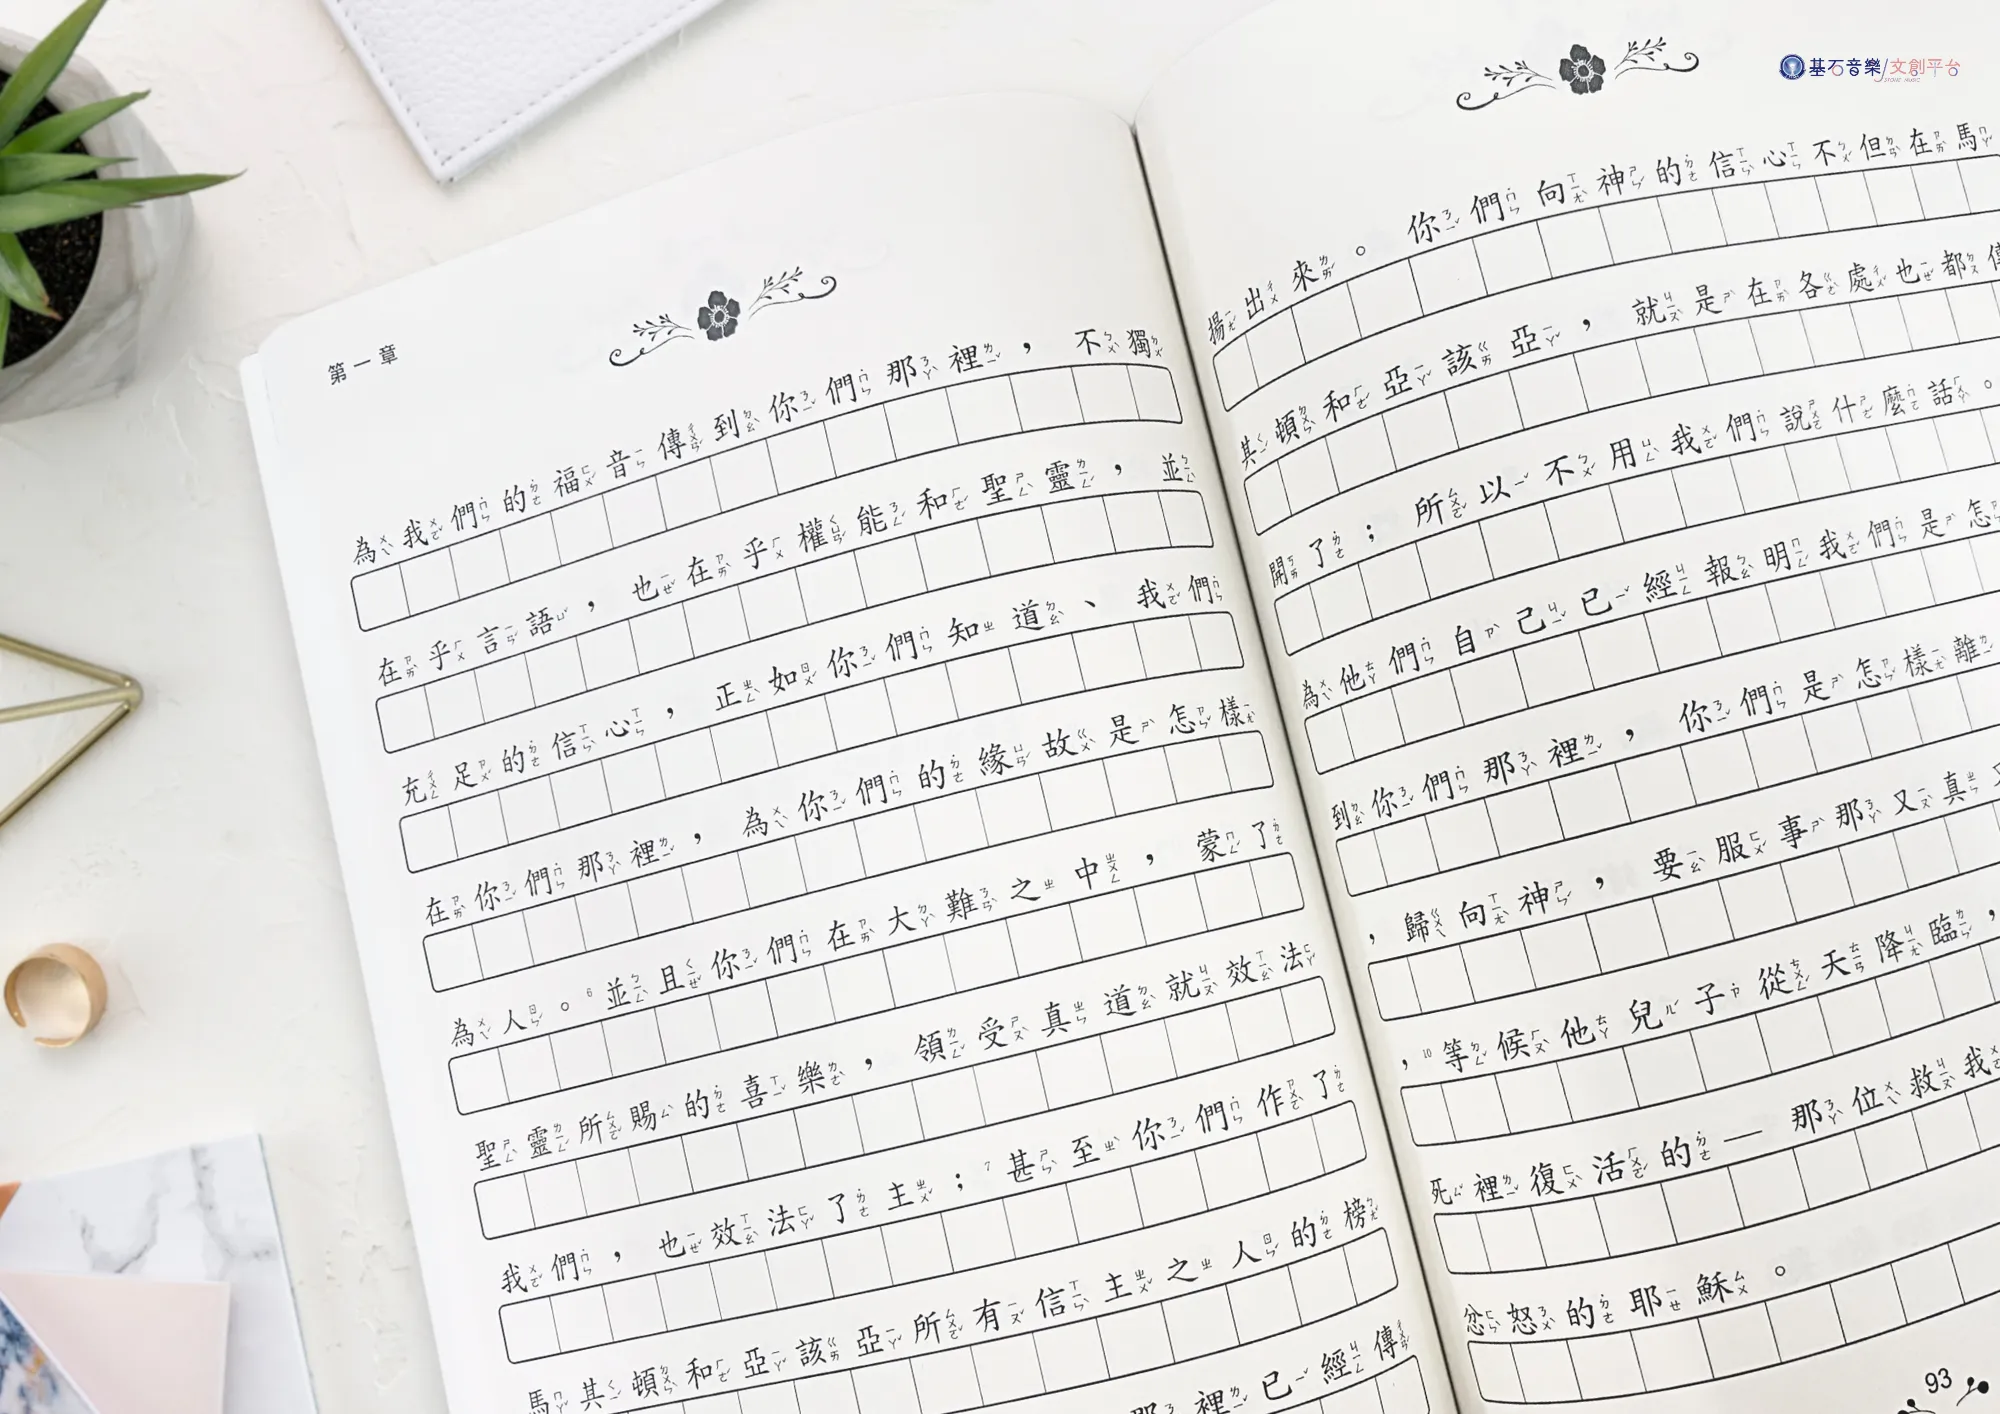 基石音樂/文創平台
第一章
為我們的福音傳到你們那裡，不獨
在乎言語，也在乎權能和聖靈，並
充足的信心，正如你們知道、我們
在你們那裡，為你們的緣故是怎樣
為人。6並且你們在大難之中，蒙了
聖靈所賜的喜樂，領受真道就效法
我們，也效法了主；7甚至你們作了
馬其頓和亞該亞所有信主之人的榜
那裡已經傳
揚出來。你們向神的信心不但在馬
其頓和亞該亞，就是在各處也都傳
開了；所以不用我們說什麼話。
為他們自己已經報明我們是怎
到你們那裡，你們是怎樣離
，歸向神，要服事那又真又
，10等候他兒子從天降臨，
死裡復活的—那位救我
忿怒的耶穌。
93